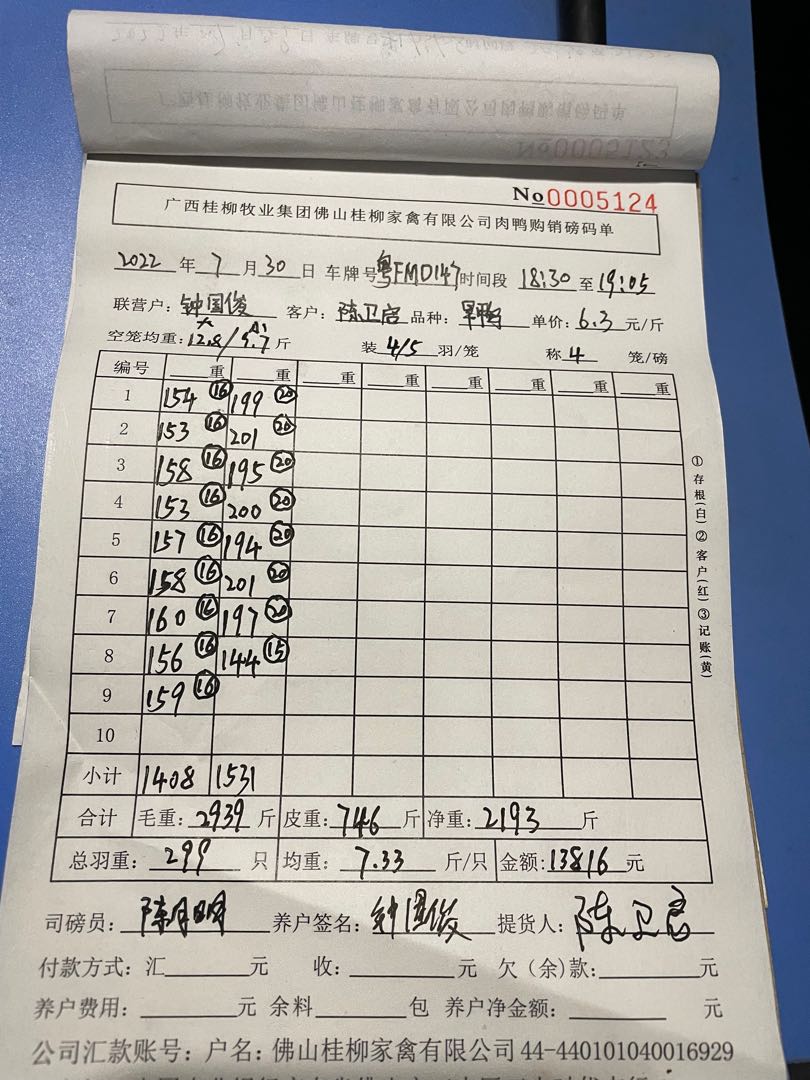 No 0005123
No 0005124
广西桂柳牧业集团佛山桂柳家禽有限公司肉鸭购销磅码单
2022 年 7 月 30 日 车牌号 粤FMD147 时间段 18:30 至 19:05
联营户: 钟国俊 客户: 陈卫启 品种: 旱鸭 单价: 6.3 元/斤
空笼均重: 大12.8/9.7 斤 装 4/5 羽/笼 称 4 笼/磅
编号 重 重 重 重 重 重 重 重
1 154 16 199 20
2 153 16 201 20
3 158 16 195 20
4 153 16 200 20
5 157 16 194 20
6 158 16 201 20
7 160 16 197 20
8 156 16 144 15
9 159 16
10
小计 1408 1531
合计 毛重: 2939 斤 皮重: 746 斤 净重: 2193 斤
总羽重: 299 只 均重: 7.33 斤/只 金额: 13816 元
司磅员: 陈月明 养户签名: 钟国俊 提货人: 陈卫启
付款方式: 汇 元 收: 元 欠(余)款: 元
养户费用: 元 余料 包 养户净金额: 元
公司汇款账号: 户名: 佛山桂柳家禽有限公司 44-440101040016929
①存根(白)②客户(红)③记账(黄)